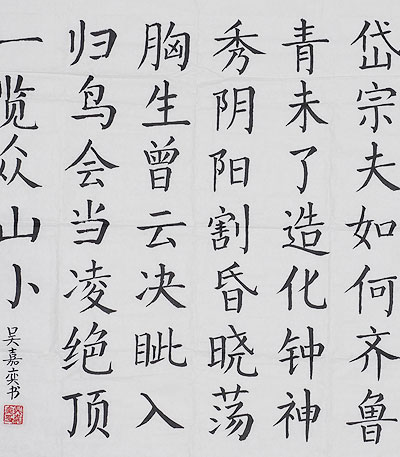 岱宗夫如何齐鲁
青未了造化钟神
秀阴阳割昏晓荡
胸生曾云决眦入
归鸟会当凌绝顶
一览众山小
吴嘉奕书